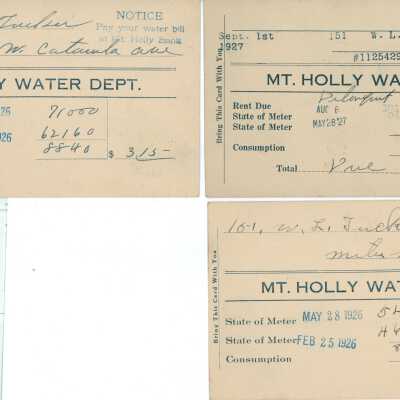 NOTICE
Pay your water bill
at Mt. Holly Bank
W. Catawba ave
Y WATER DEPT.
26 71000
926 62160
8840 $ 3.15-
Sept. 1st 151 W. L.
1927
#1125429
MT. HOLLY WA
Bring This Card With You
Rent Due
State of Meter AUG 6
State of Meter MAY 28 '27
Consumption
Total Due
151, W. L. Tuck
MT. HOLLY WAT
Bring This Card With You
State of Meter MAY 28 1926 54
State of Meter FEB 25 1926 44
Consumption